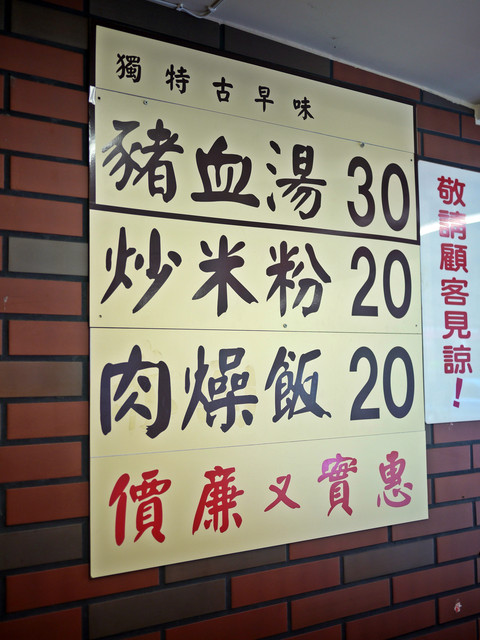 獨特古早味
豬血湯 30
炒米粉 20
肉燥飯 20
價廉又實惠
敬請顧客見諒！